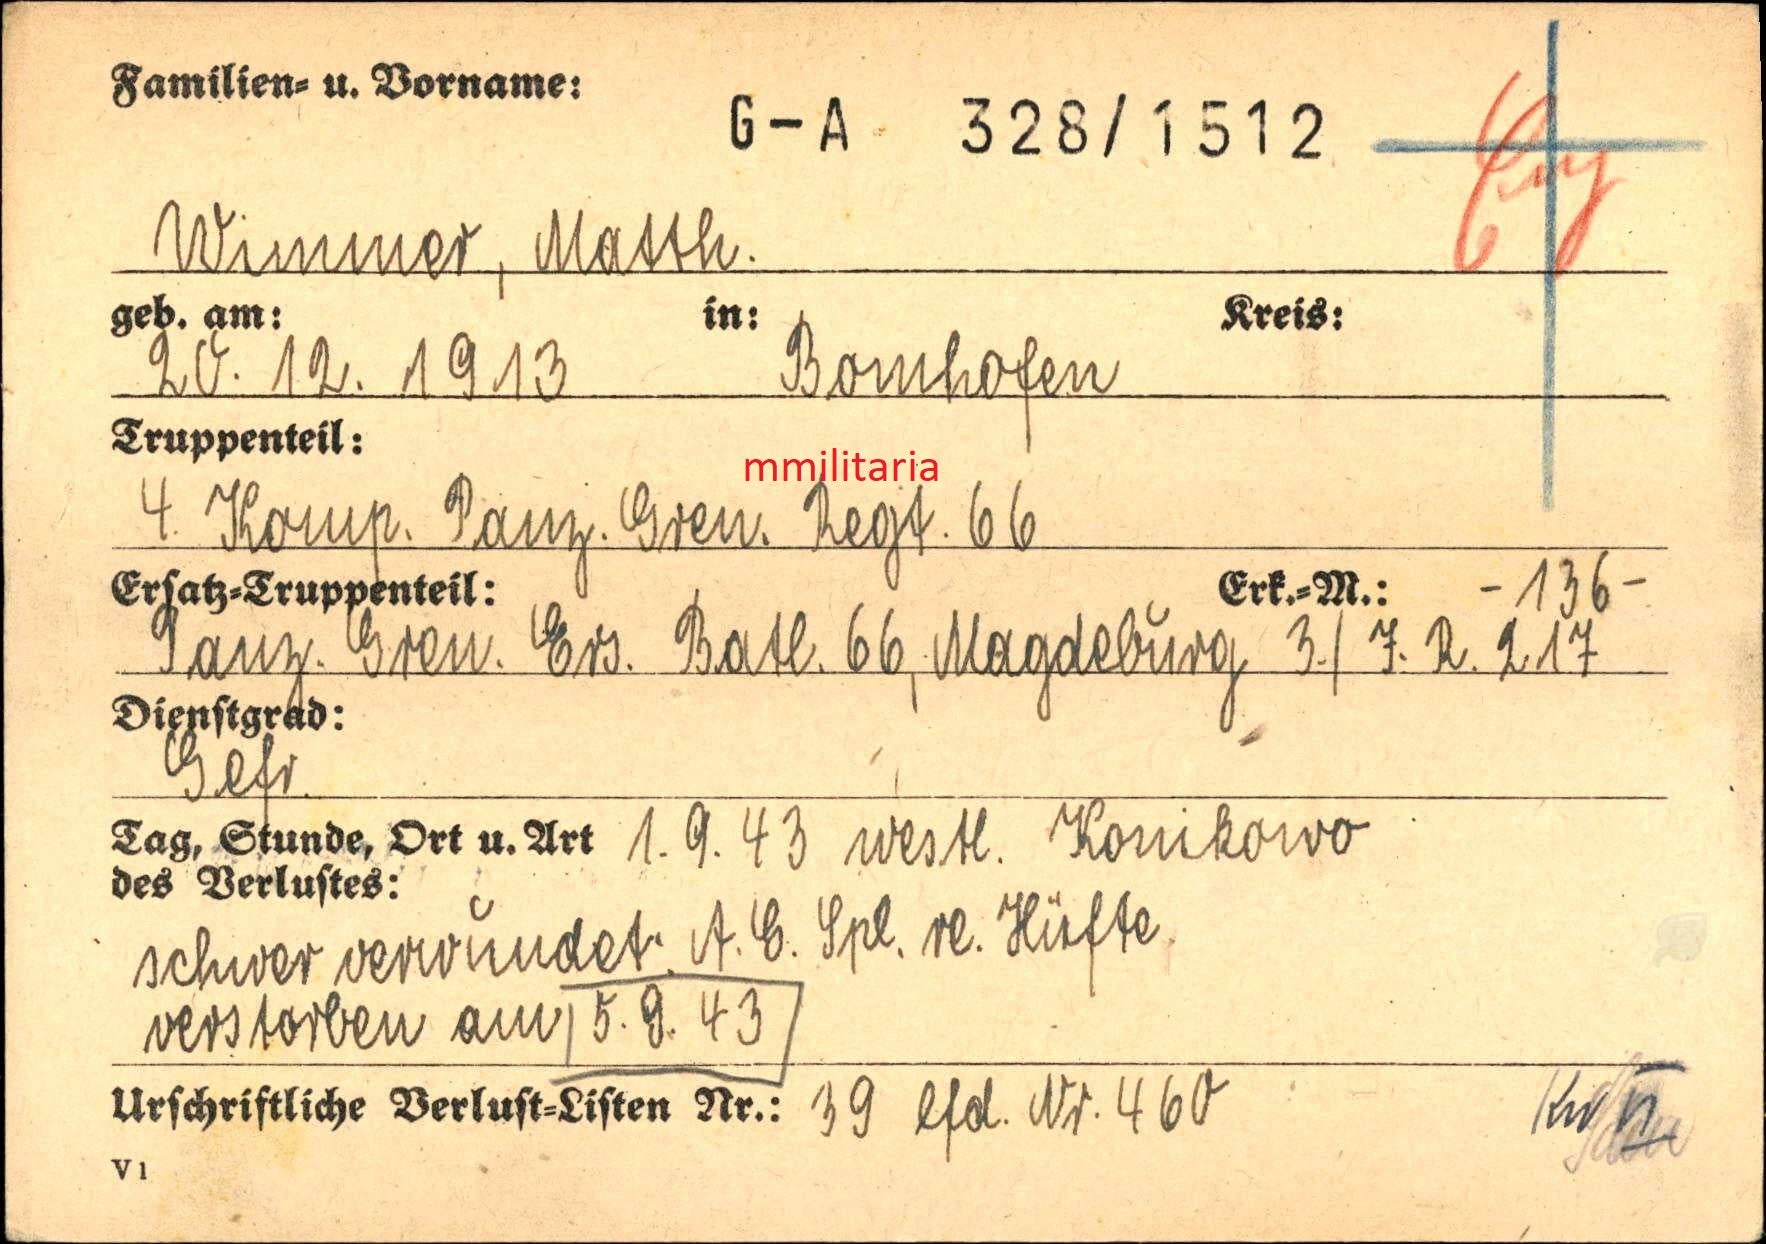 Familien- u. Vorname:
G-A 328/1512
Wimmer, Matth.
geb. am: in: Kreis:
20. 12. 1913 Bomhofen
Truppenteil:
mmilitaria
4. Komp. Panz. Gren. Regt. 66
Ersatz-Truppenteil: Erk.-M.: -136-
Panz. Gren. Ers. Batl. 66, Magdeburg 3./ J. R. 217
Dienstgrad:
Gefr.
Tag, Stunde, Ort u. Art 1. 9. 43 westl. Konikowo
des Verlustes:
schwer verwundet. A. G. Spl. re. Hüfte
verstorben am 5. 9. 43
Urschriftliche Verlust-Listen Nr.: 39 lfd. Nr. 460
V 1